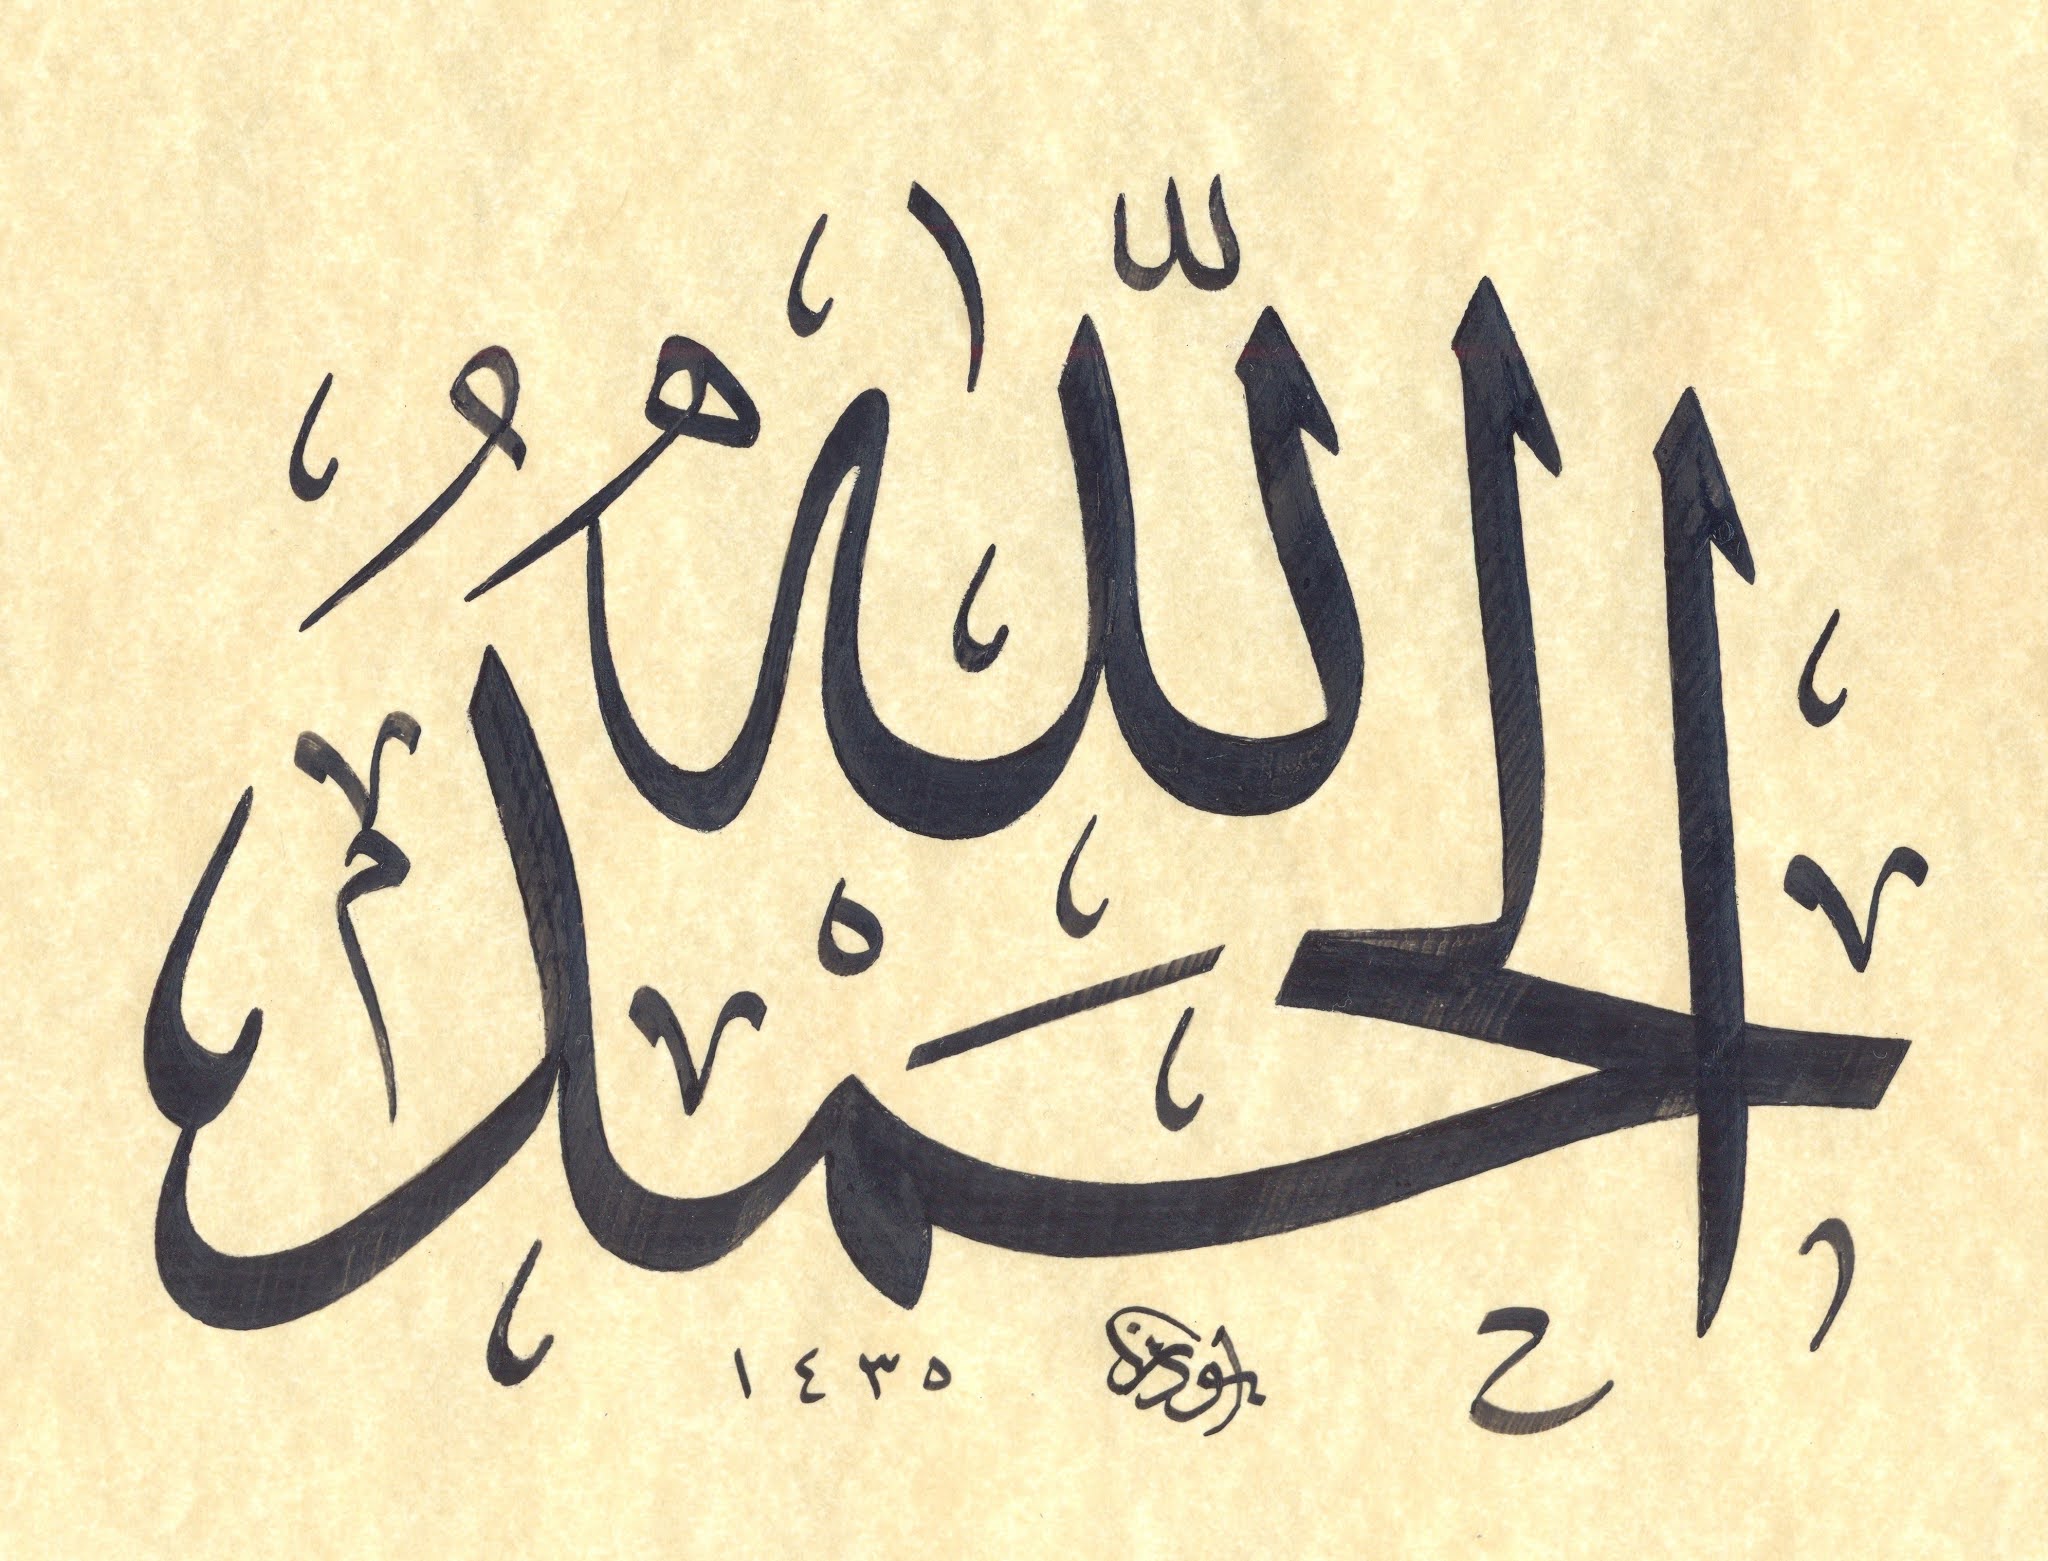 الحَمْدُ لله
١٤٣٥